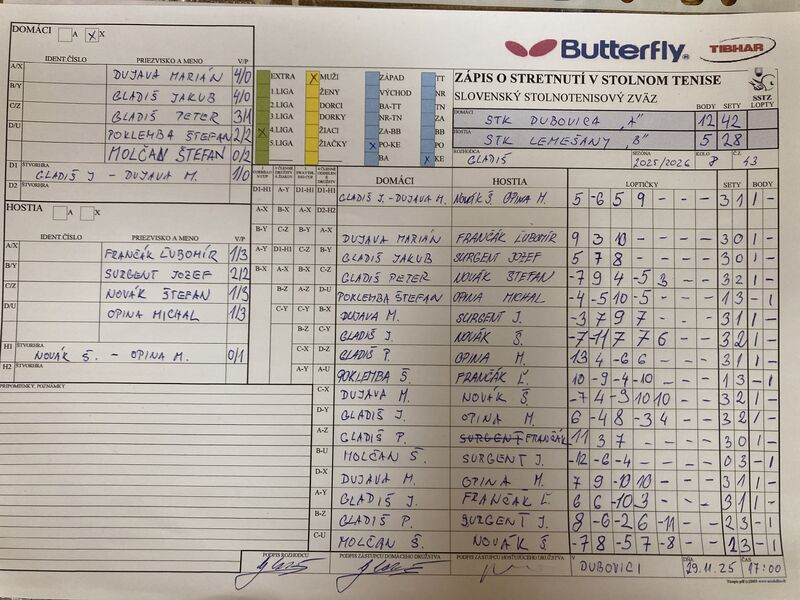 DOMÁCI A X X
IDENT.ČÍSLO PRIEZVISKO A MENO V/P
A/X DUJAVA MARIÁN 4/0
B/Y GLADIŠ JAKUB 4/0
C/Z GLADIŠ PETER 3/1
D/U POKLEMBA ŠTEFAN 2/2
MOLČAN ŠTEFAN 0/2
D1 ŠTVORHRA GLADIŠ J - DUJAVA M. 1/0
D2 ŠTVORHRA
HOSTIA A X
IDENT.ČÍSLO PRIEZVISKO A MENO V/P
A/X FRANČÁK ĽUBOMÍR 1/3
B/Y SURGENT JOZEF 2/2
C/Z NOVÁK ŠTEFAN 1/3
D/U OPINA MICHAL 1/3
H1 ŠTVORHRA NOVÁK Š. - OPINA M. 0/1
H2 ŠTVORHRA
PRIPOMIENKY, POZNÁMKY
EXTRA X MUŽI ZÁPAD TT
1.LIGA ŽENY VÝCHOD NR
2.LIGA DORCI BA-TT TN
3.LIGA DORKY NR-TN ZA
X 4.LIGA ŽIACI ZA-BB BB
5.LIGA ŽIAČKY X PO-KE PO
BA X KE
Butterfly
TIBHAR
ZÁPIS O STRETNUTÍ V STOLNOM TENISE
SLOVENSKÝ STOLNOTENISOVÝ ZVÄZ
SSTZ
BODY SETY LOPTY
DOMÁCI STK DUBOVICA "A" 12 42
HOSTIA STK LEMEŠANY "B" 5 28
ROZHODCA GLADIŠ SEZÓNA 2025/2026 KOLO 8 Č.Z. 43
DOMÁCI HOSTIA LOPTIČKY SETY BODY
GLADIŠ J. - DUJAVA M. NOVÁK Š. OPINA M. 5 -6 5 9 - - - 3 1 1 -
DUJAVA MARIÁN FRANČÁK ĽUBOMÍR 9 3 10 - - - - 3 0 1 -
GLADIŠ JAKUB SURGENT JOZEF 5 7 8 - - - - 3 0 1 -
GLADIŠ PETER NOVÁK ŠTEFAN -7 9 4 -5 3 - - 3 2 1 -
POKLEMBA ŠTEFAN OPINA MICHAL -4 -5 10 -5 - - - 1 3 - 1
DUJAVA M. SURGENT J. -3 7 9 7 - - - 3 1 1 -
GLADIŠ J. NOVÁK Š. -7 -11 7 7 6 - - 3 2 1 -
GLADIŠ P. OPINA M. 13 4 -6 6 - - - 3 1 1 -
POKLEMBA Š. FRANČÁK Ľ. 10 -9 -4 -10 - - - 1 3 - 1
DUJAVA M. NOVÁK Š. -7 4 -9 10 10 - - 3 2 1 -
GLADIŠ J. OPINA M. 6 -4 8 -3 4 - - 3 2 1 -
GLADIŠ P. SURGENT FRANČÁK 11 3 7 - - - - 3 0 1 -
MOLČAN Š. SURGENT J. -12 -6 -4 - - - - 0 3 - 1
DUJAVA M. OPINA M. 7 9 -10 10 - - - 3 1 1 -
GLADIŠ J. FRANČÁK Ľ. 6 6 -10 3 - - - 3 1 1 -
GLADIŠ P. SURGENT J. 8 -6 -2 6 -11 - - 2 3 - 1
MOLČAN Š. NOVÁK Š. -7 8 -5 7 -8 - - 2 3 - 1
PODPIS ROZHODCU PODPIS ZÁSTUPCU DOMÁCEHO DRUŽSTVA PODPIS ZÁSTUPCU HOSŤUJÚCEHO DRUŽSTVA V DUBOVICI DŇA 29.11.25 ČAS 17:00